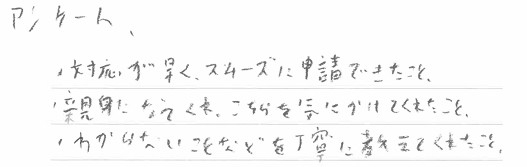 アンケート、
・対応が早く、スムーズに申請できたこと。
・親身になってくれ、こちらを気にかけてくれたこと。
・わからないことなどを丁寧に教えてくれたこと。